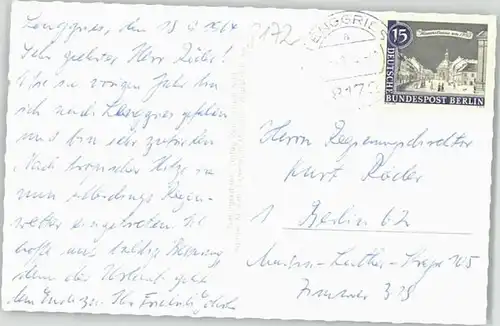 Lenggries, den 18. 8. 1964
Sehr geehrter Herr Röder!
Wie im vorigen Jahr bin
ich nach Lenggries gefahren
und bin sehr zufrieden
Nach tropischer Hitze ist
nun allerdings Regen-
wetter eingetreten. Ich
hoffe auf baldige Besserung
denn der Urlaub geht
dem Ende zu. Ihr
8172
LENGGRIES
a
8172
15
DEUTSCHE
BUNDESPOST BERLIN
Herrn Regierungsdirektor
Kurt Röder
1 Berlin 62
Martin-Luther-Straße 105
Zimmer 313